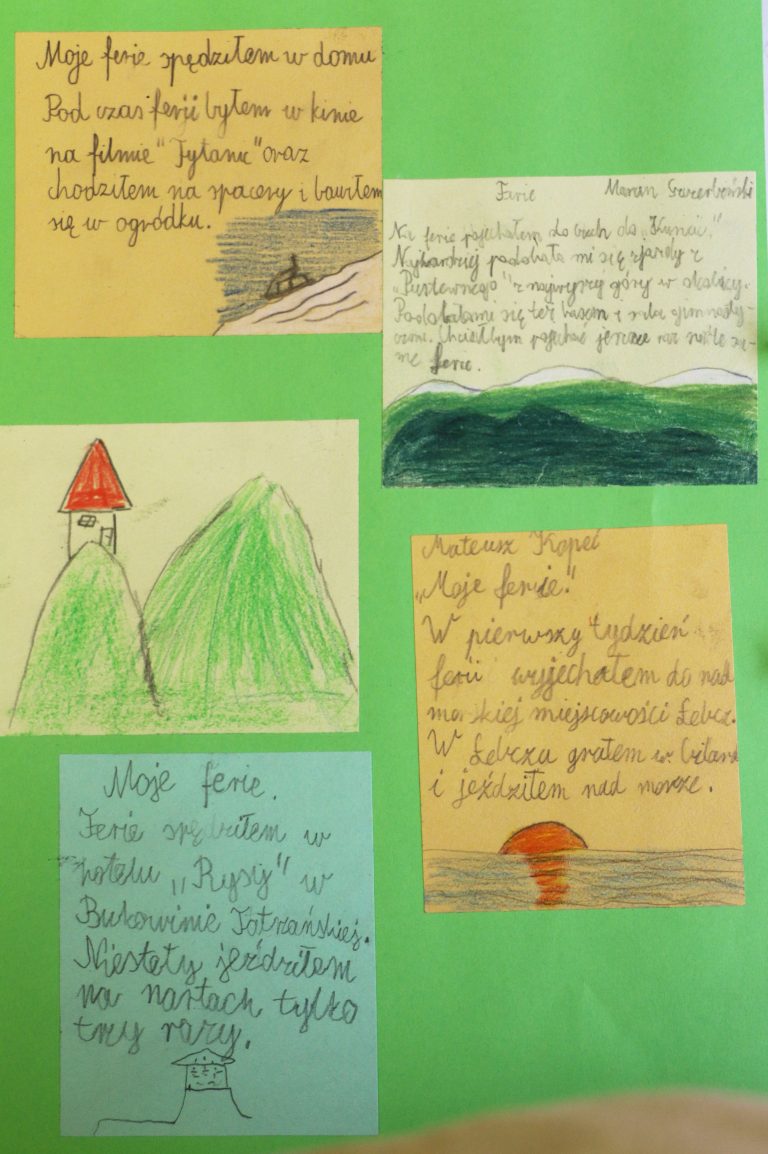 Moje ferie spędziłem w domu
Pod czas ferji byłem w kinie
na filmie "Tytanic" oraz
chodziłem na spacery i bawiłem
się w ogródku.
Ferie Marcin
Na ferie pojechałem do
Najbardziej podobała mi się zjazdy z
z najwyrzszy góry w okolicy.
Podobałami się też basen i sala gimnasty-
czna. Chciałbym pojechać jeszcze raz
ferie.
Mateusz Kopeć
„Moje ferie."
W pierwszy tydzień
ferii wyjechałem do nad
morskiej miejscowości Łebcz.
W Łebczu grałem w
i jeździłem nad morze.
Moje ferie.
Ferie spędziłem w
hotelu „Rysy" w
Bukowinie Tatrzańskiej.
Niestety jeździłem
na nartach tylko
trzy razy.